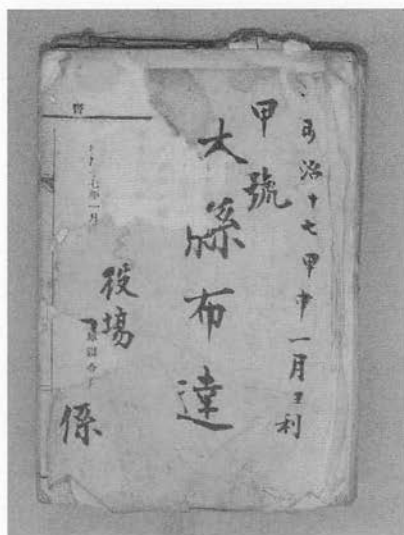 明治十七甲申一月ヨ利
甲號
大縣布達
役場
係
七年一月